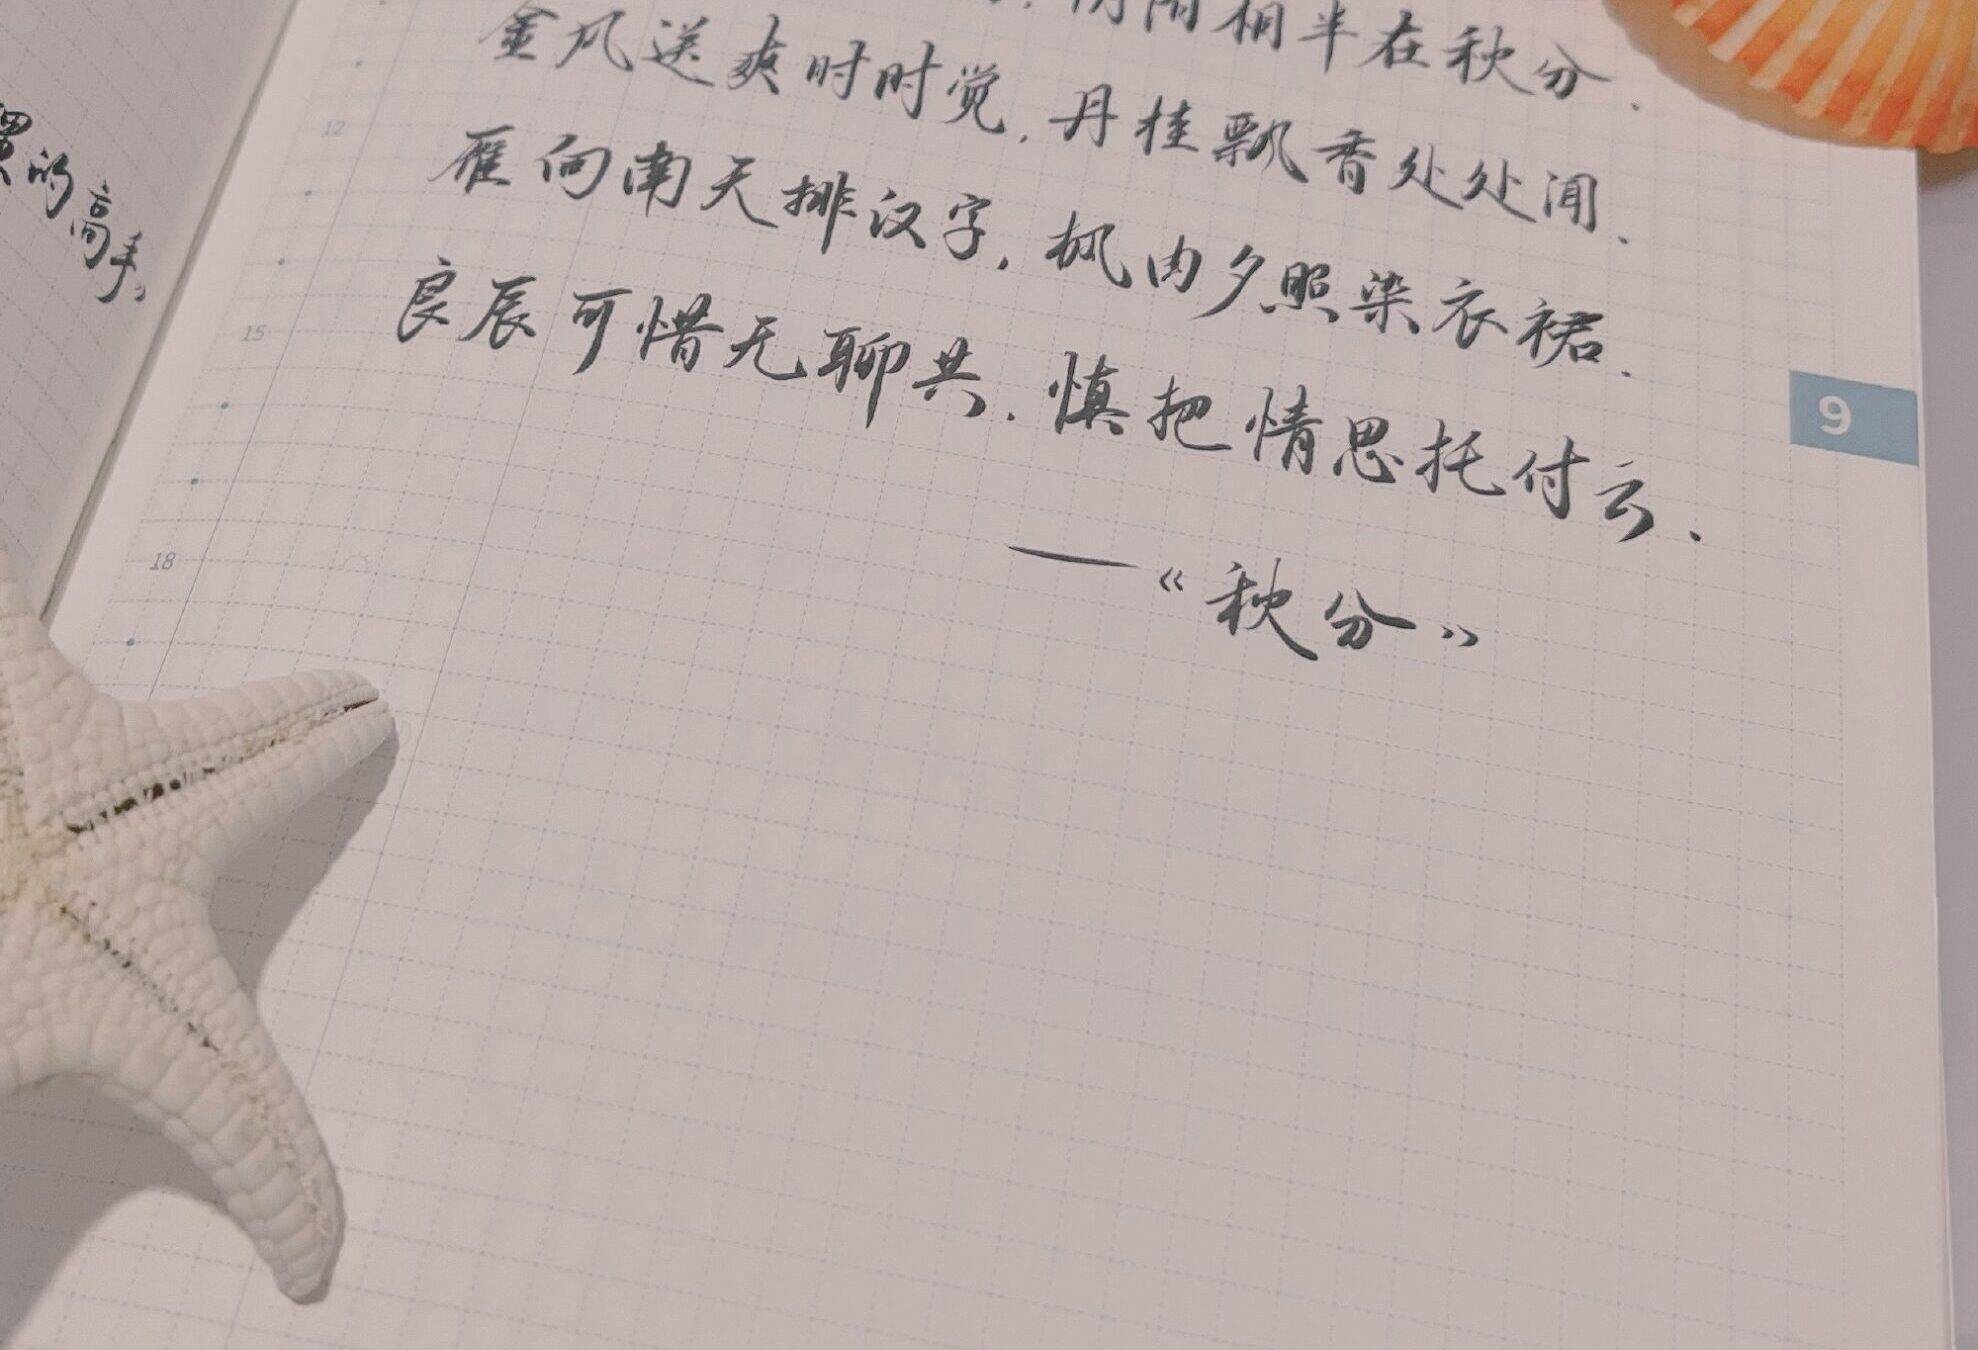 阴阳相半在秋分.
金风送爽时时觉,丹桂飘香处处闻.
雁向南天排汉字,枫由夕照染衣裙.
良辰可惜无聊共.慎把情思托付云.
—《秋分》
的高手。
12
15
18
9